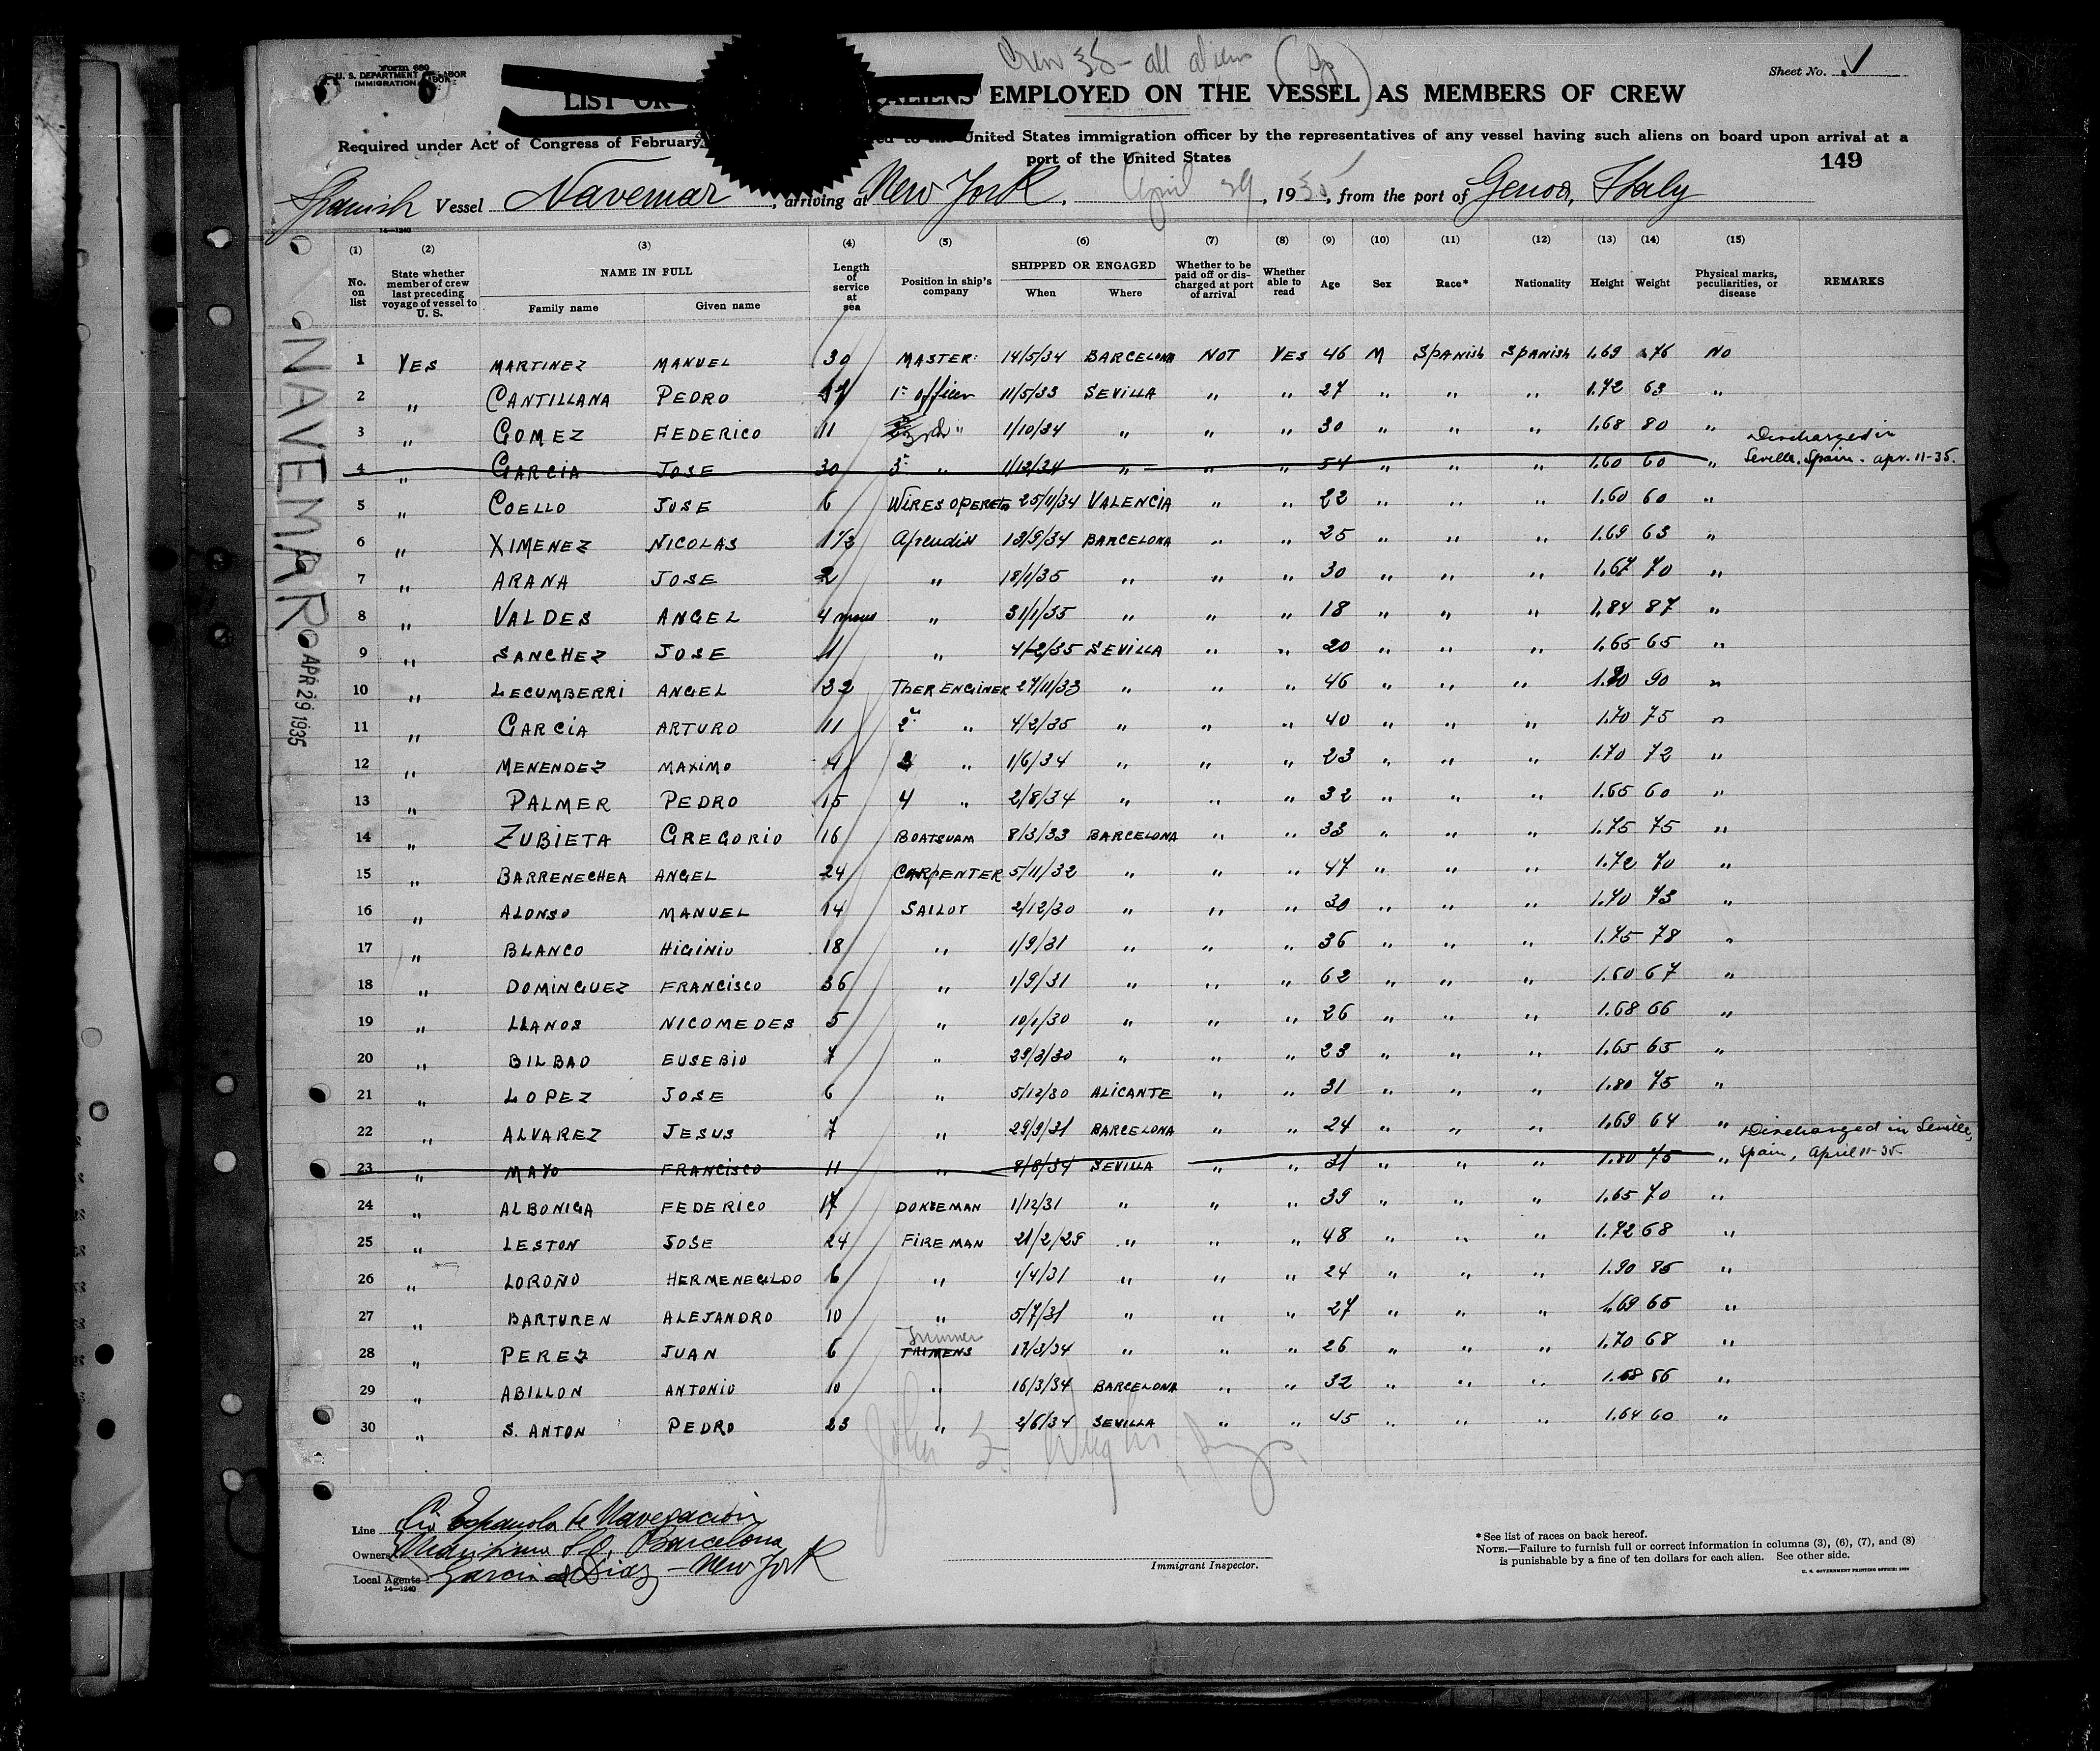 Form 680
U. S. DEPARTMENT OF LABOR
IMMIGRATION
Crew 38 - all aliens
Sheet No. 1
LIST OR ALIENS EMPLOYED ON THE VESSEL AS MEMBERS OF CREW
Required under Act of Congress of February ed to the United States immigration officer by the representatives of any vessel having such aliens on board upon arrival at a
port of the United States
149
Spanish Vessel Navemar, arriving at New York, April 29, 1935, from the port of Genoa, Italy
14—1240
(1) (2) (3) (4) (5) (6) (7) (8) (9) (10) (11) (12) (13) (14) (15)
No. on list State whether member of crew last preceding voyage of vessel to U. S. NAME IN FULL Family name Given name Length of service at sea Position in ship's company SHIPPED OR ENGAGED When Where Whether to be paid off or discharged at port of arrival Whether able to read Age Sex Race* Nationality Height Weight Physical marks, peculiarities, or disease REMARKS
NAVEMAR
APR 29 1935
1 YES MARTINEZ MANUEL 30 MASTER 14/5/34 BARCELONA NOT YES 46 M SPANISH SPANISH 1.69 76 NO
2 " CANTILLANA PEDRO 1º officer 11/5/33 SEVILLA " " 27 " " " 1.72 63 "
3 " GOMEZ FEDERICO 11 " 1/10/34 " " " 30 " " " 1.68 80 "
4 " GARCIA JOSE 30 3º " 1/12/34 " " " 54 " " " 1.60 60 " Discharged in Seville, Spain. Apr. 11-35.
5 " COELLO JOSE 6 WIRES OPERETO 25/11/34 VALENCIA " " 22 " " " 1.60 60 "
6 " XIMENEZ NICOLAS 1 1/2 13/9/34 BARCELONA " " 25 " " " 1.69 63 "
7 " ARANA JOSE 2 " 18/1/35 " " " 30 " " " 1.67 70 "
8 " VALDES ANGEL 4 " 31/1/35 " " " 18 " " " 1.84 87 "
9 " SANCHEZ JOSE 11 " 4/2/35 SEVILLA " " 20 " " " 1.65 65 "
10 " LECUMBERRI ANGEL 32 27/11/33 " " " 46 " " " 90 "
11 " GARCIA ARTURO 11 2º " 4/2/35 " " " 40 " " " 1.70 75 "
12 " MENENDEZ MAXIMO 4 " 1/6/34 " " " 23 " " " 1.70 72 "
13 " PALMER PEDRO 15 4 " 2/8/34 " " " 32 " " " 1.65 60 "
14 " ZUBIETA GREGORIO 16 BOATSUAM 8/3/33 BARCELONA " " 33 " " " 1.75 75 "
15 " BARRENECHEA ANGEL 24 CARPENTER 5/11/32 " " " 47 " " " 1.72 70 "
16 " ALONSO MANUEL 14 SAILOT 2/12/30 " " " 30 " " " 1.70 73 "
17 " BLANCO HIGINIO 18 " 1/9/31 " " " 36 " " " 1.75 78 "
18 " DOMINGUEZ FRANCISCO 36 " 1/9/31 " " " 62 " " " 1.60 67 "
19 " LLANOS NICOMEDES 5 " 10/1/30 " " " 26 " " " 1.68 66 "
20 " BILBAO EUSEBIO 7 " 29/3/30 " " " 23 " " " 1.65 65 "
21 " LOPEZ JOSE 6 " 5/12/30 ALICANTE " " 31 " " " 1.80 75 "
22 " ALVAREZ JESUS 7 " 29/9/31 BARCELONA " " 24 " " " 1.69 64 "
23 " MAYO FRANCISCO 11 " 8/8/34 SEVILLA " " 31 " " " 1.80 75 " Discharged in Seville, Spain, April 11-35
24 " ALBONIGA FEDERICO 17 DONKEMAN 1/12/31 " " " 39 " " " 1.65 70 "
25 " LESTON JOSE 24 FIREMAN 21/2/29 " " " 48 " " " 1.72 68 "
26 " LOROÑO HERMENEGILDO 6 " 1/4/31 " " " 24 " " " 1.90 85 "
27 " BARTUREN ALEJANDRO 10 " 5/7/31 " " " 27 " " " 1.69 65 "
28 " PEREZ JUAN 6 Trimmer TRIMENS 17/3/34 " " " 26 " " " 1.70 68 "
29 " ABILLON ANTONIO 10 " 16/3/34 BARCELONA " " 32 " " " 1.68 66 "
30 " S. ANTON PEDRO 23 " 2/6/34 SEVILLA " " 45 " " " 1.64 60 "
Line Cia Española de Navegación
Owners Maritima S.A. Barcelona
Local Agents Garcia & Diaz - New York
14—1240
Immigrant Inspector.
* See list of races on back hereof.
NOTE.—Failure to furnish full or correct information in columns (3), (6), (7), and (8)
is punishable by a fine of ten dollars for each alien. See other side.
U. S. GOVERNMENT PRINTING OFFICE: 1934